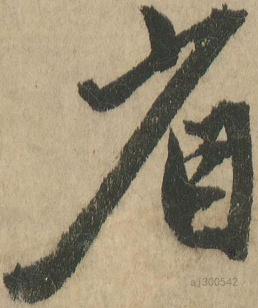 省
aj300542